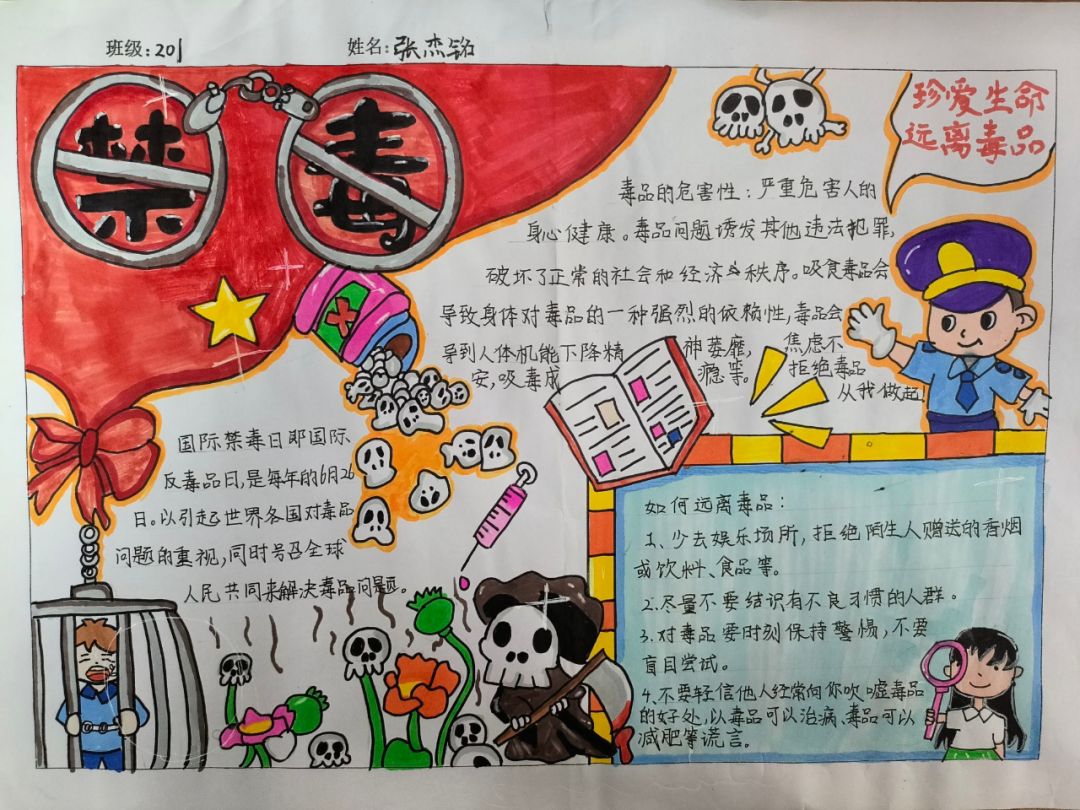 班级:201
姓名:张杰铭
禁毒
珍爱生命
远离毒品
毒品的危害性:严重危害人的
身心健康。毒品问题诱发其他违法犯罪,
破坏了正常的社会和经济秩序。吸食毒品会
导致身体对毒品的一种强烈的依赖性,毒品会
导到人体机能下降精神萎靡,焦虑不
安,吸毒成瘾等。拒绝毒品
从我做起!
国际禁毒日即国际
反毒品日,是每年的6月26
日。以引起世界各国对毒品
问题的重视,同时号召全球
人民共同来解决毒品问题。
如何远离毒品:
1、少去娱乐场所,拒绝陌生人赠送的香烟
或饮料、食品等。
2.尽量不要结识有不良习惯的人群。
3.对毒品要时刻保持警惕,不要
盲目尝试。
4.不要轻信他人经常向你吹嘘毒品
的好处,以毒品可以治病、毒品可以
减肥等谎言。